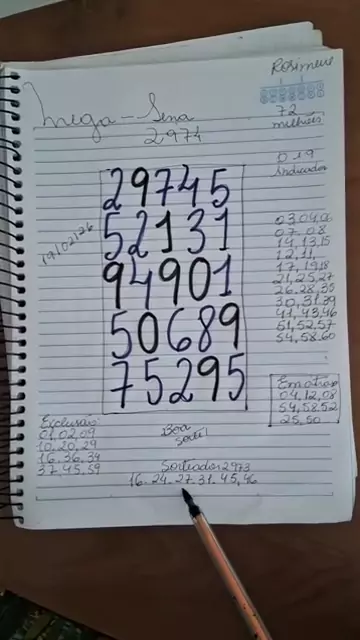 Rosimeire
Mega-Sena
2974
72
milhões
019
Indicador
19/02/26
29745
52131
94901
50689
75295
03.04.06
07.08
14,13,15
12,11,
17,19,18
21,25,27
26.28,35
30,31.39
41,43,46
51,52,57
54,58.60
04,12,08
54,58.52
25,50
Exclusão:
01,02,09
10.20,29
16.36.34
37,45,59
Boa
sorte!
Sorteador 2973
16.24.27.31.45,46